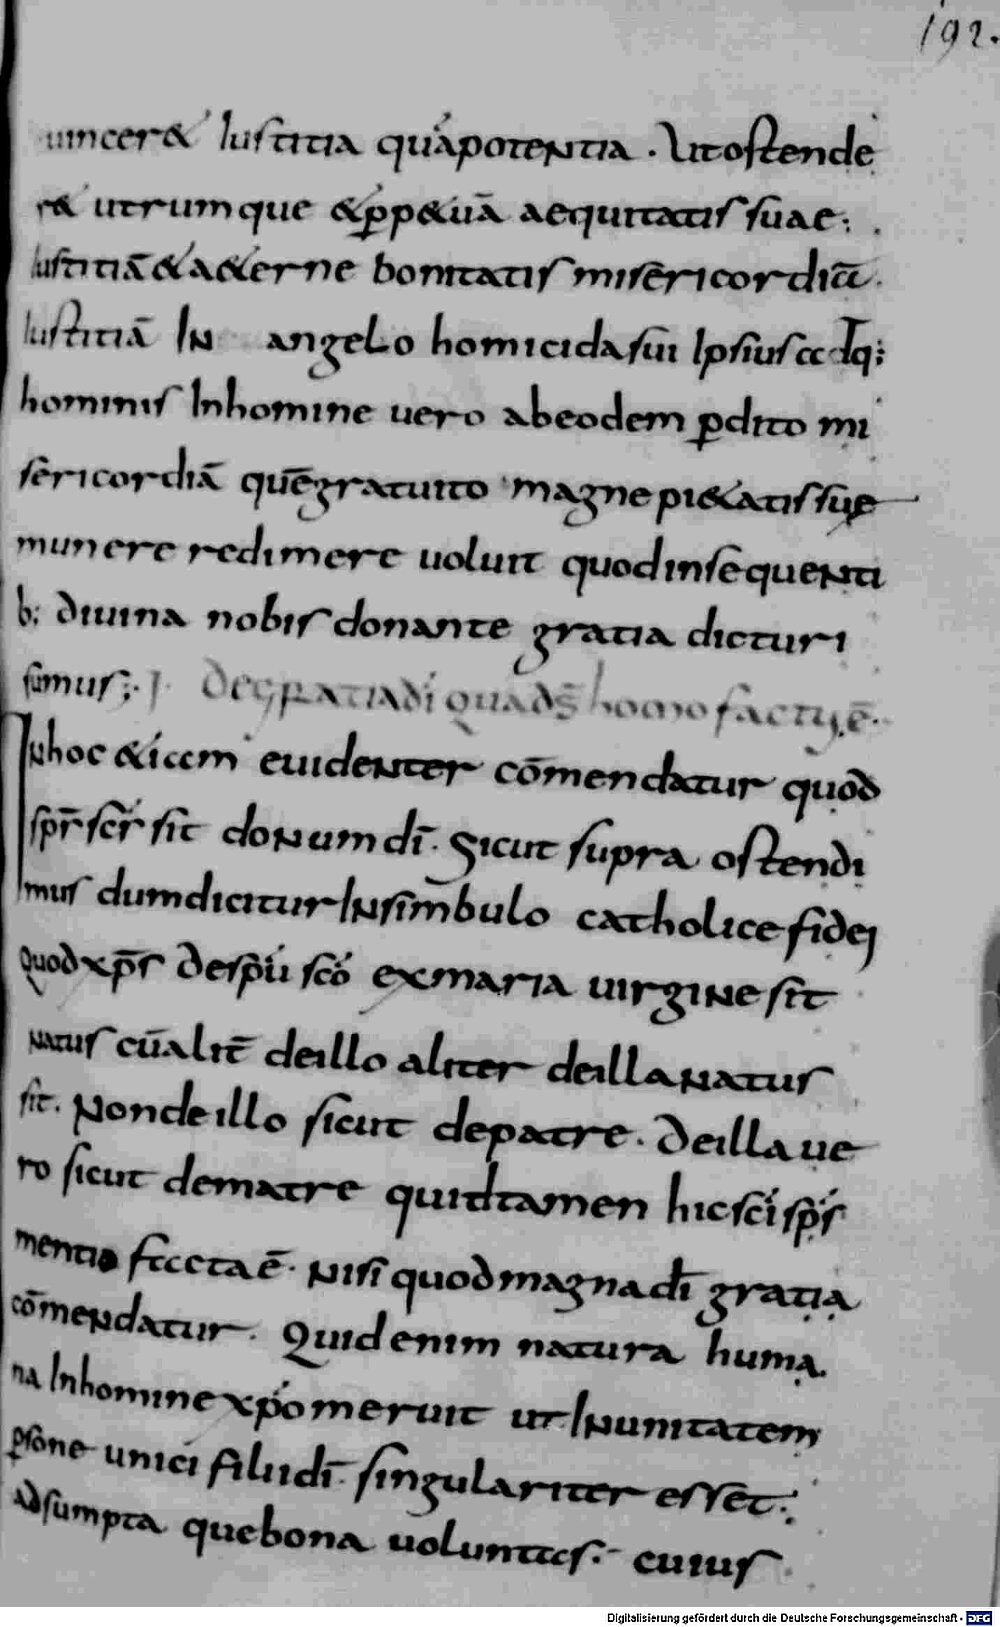 192.
uincer& Iustitia quā potentia. Ut ostende
r& utrumque &ꝑp&uā aequitatis suae;.
Iustitiā & a&erne bonitatis misericordiā.
Iustitiā In angelo homicida sui Ipsius atq;
hominis Inhomine uero abeodem ꝑdito mi
sericordiā quē gratuito magne pi&atis suę
munere redimere uoluit quod insequenti
b; diuina nobis donante gratia dicturi
sumus;
De gratia dī qua ds̄ homo factus ē.
Inhoc &iam euidenter cōmendatur quod
sps̄ scs̄ sit donum dī. Sicut supra ostendi
mus dum dicitur In simbulo catholice fidei
quod xp̄s de spū scō ex maria uirgine sit
natus cū alit̄ de illo aliter de illa natus
sit. Non de illo sicut de patre. De illa ue
ro sicut de matre quid tamen hic sci sps
mentio facta ē. Nisi quod magna dī gratia
cōmendatur. Quid enim natura huma
na Inhomine xpo meruit ut Inunitatem
ꝑsone unici filii dī. singulariter esset.
adsumpta que bona uoluntas. cuius
Digitalisierung gefördert durch die Deutsche Forschungsgemeinschaft - DFG